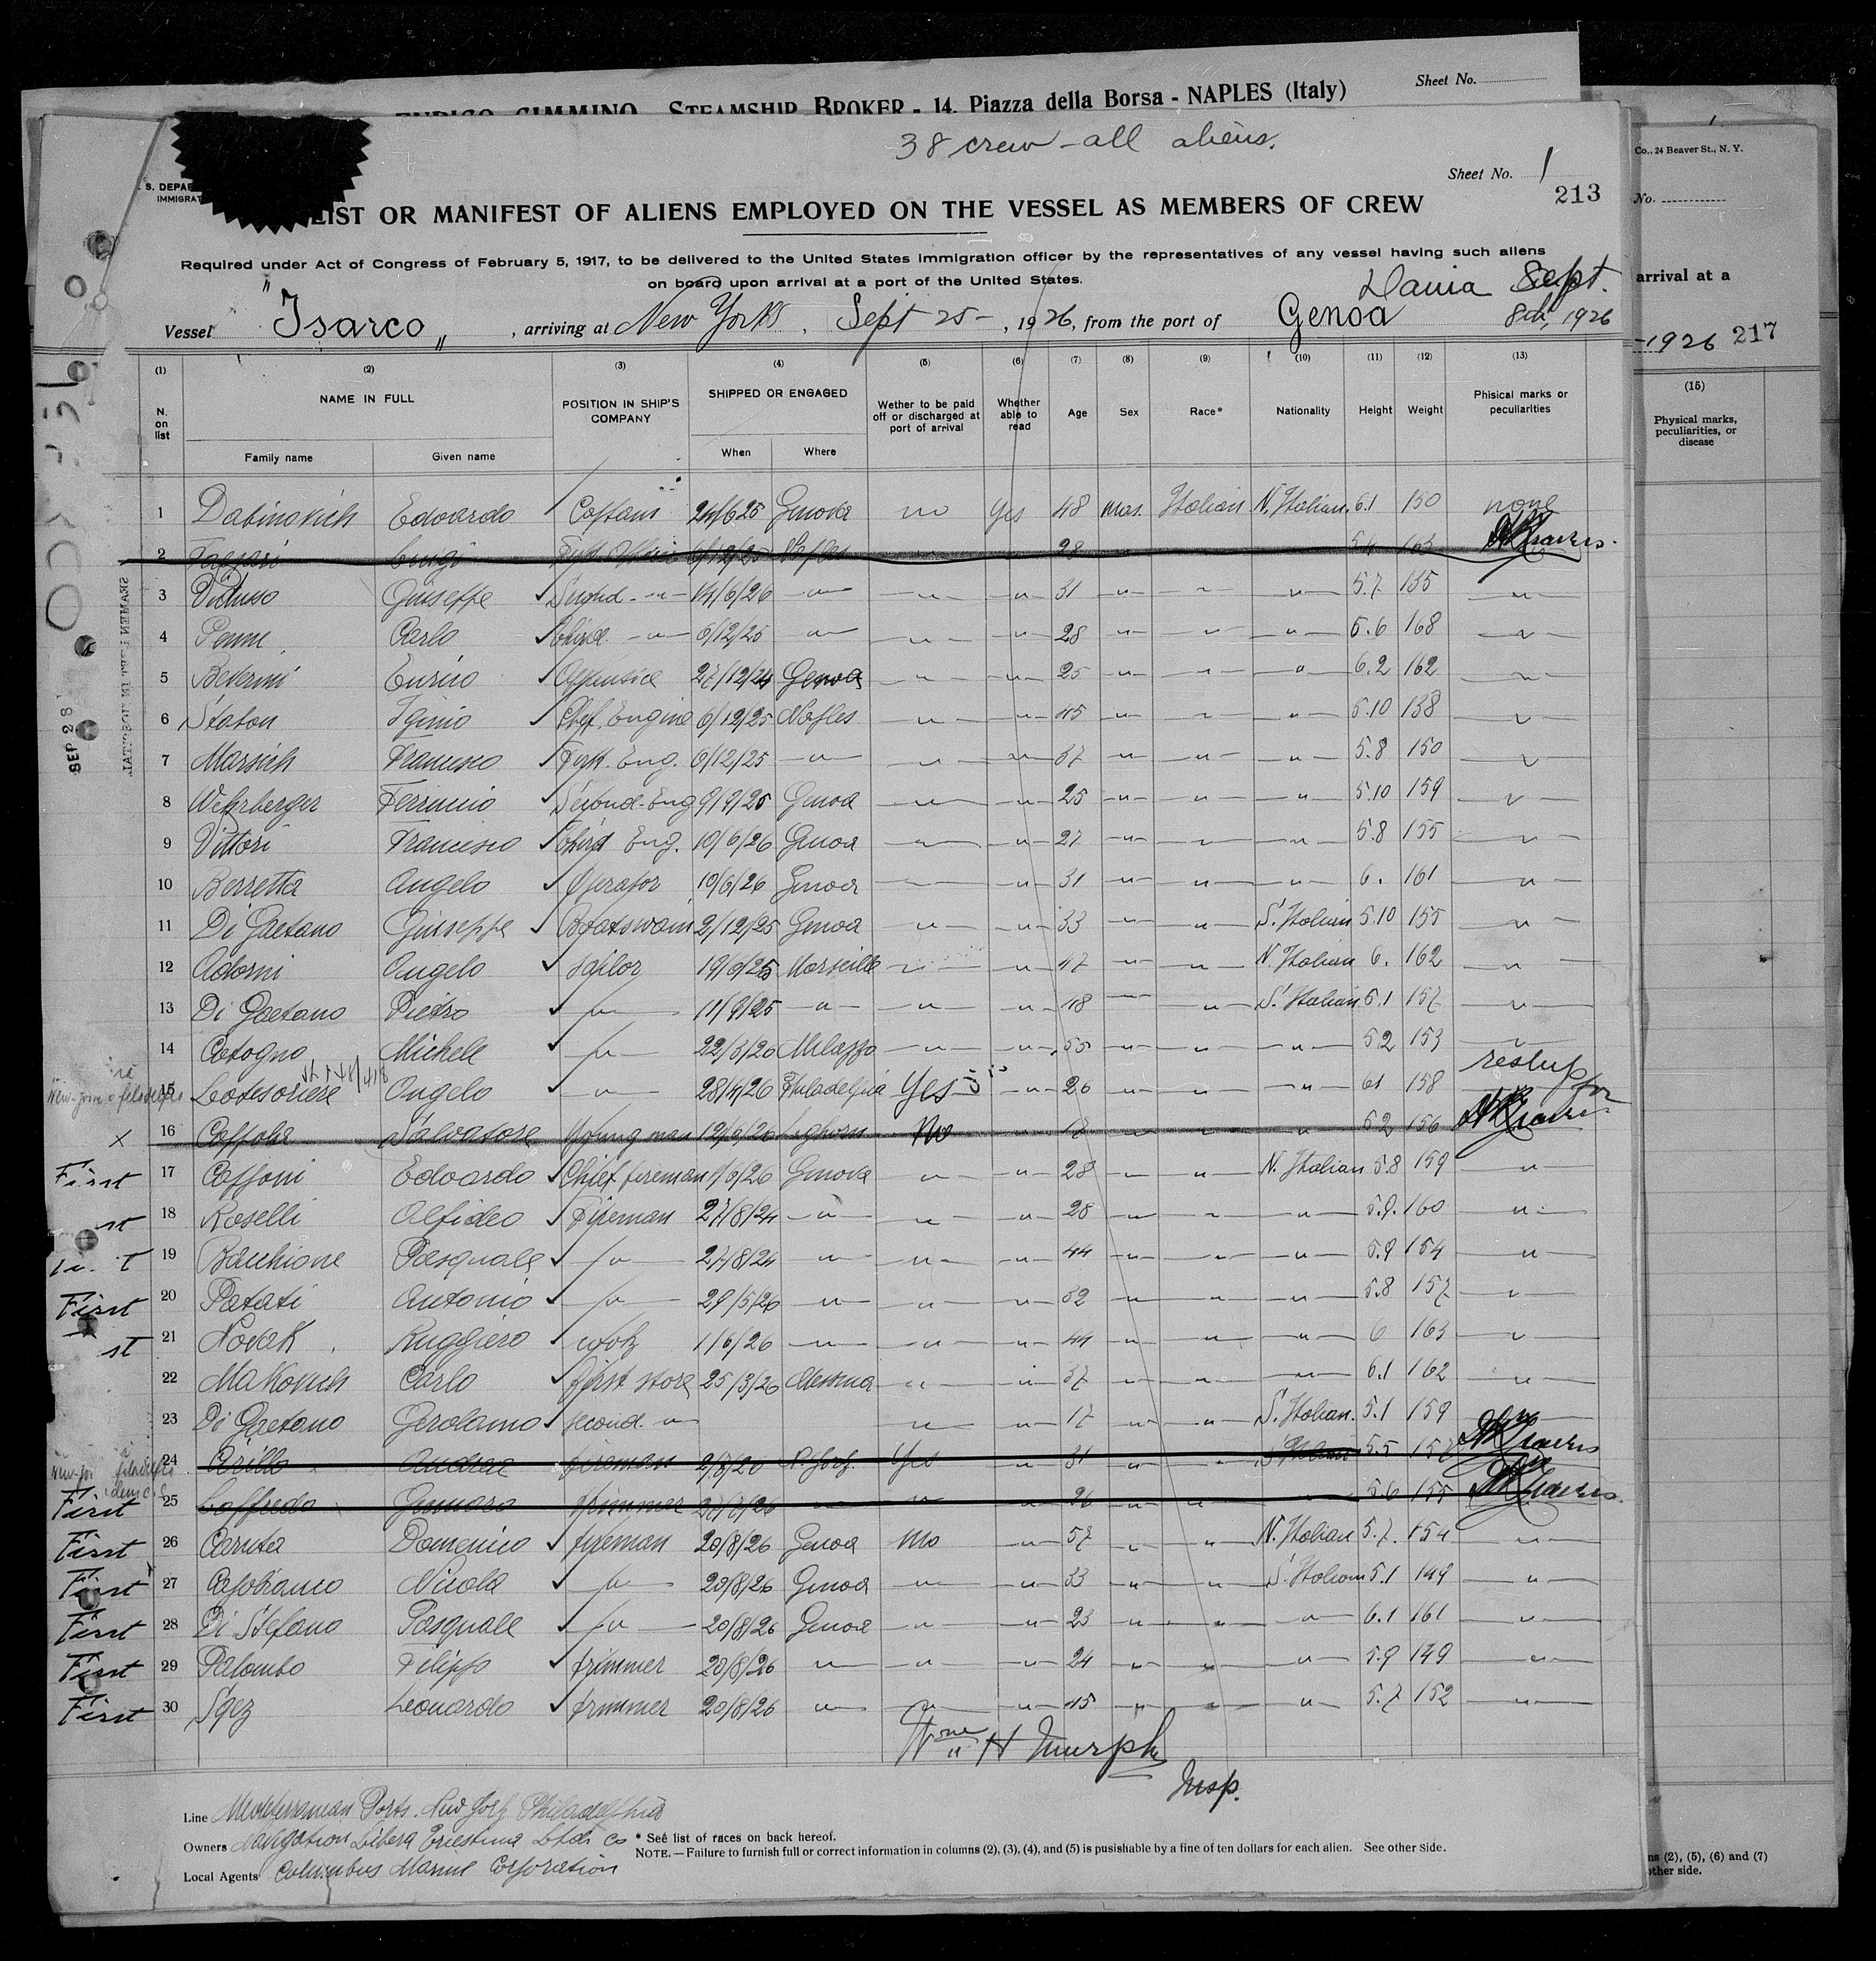 ENRICO CIMMINO STEAMSHIP BROKER - 14, Piazza della Borsa - NAPLES (Italy)
Sheet No.
38 crew - all aliens.
Co., 24 Beaver St., N. Y.
Sheet No. 1
213
No.
S. DEPAR
IMMIGRAT
LIST OR MANIFEST OF ALIENS EMPLOYED ON THE VESSEL AS MEMBERS OF CREW
Required under Act of Congress of February 5, 1917, to be delivered to the United States immigration officer by the representatives of any vessel having such aliens
on board upon arrival at a port of the United States.
arrival at a
Sept.
Vessel "Isarco", arriving at New York, Sept 25 -, 1926, from the port of Genoa 8th, 1926
-1926 217
(1) (2) (3) (4) (5) (6) (7) (8) (9) (10) (11) (12) (13)
(15)
N. on list NAME IN FULL Family name Given name POSITION IN SHIP'S COMPANY SHIPPED OR ENGAGED When Where Wether to be paid off or discharged at port of arrival Whether able to read Age Sex Race* Nationality Height Weight Phisical marks or peculiarities
Physical marks, peculiarities, or disease
1 Dabinovich Edoardo Captain 24/6 25 Genova no Yes 48 mas. Italian N. Italian 6.1 150 none
2 Luigi 6/12/25 Naples 28 5.4 163
3 Giuseppe Second - " - 14/6/26 - " - - " - - " - 31 - " - - " - - " - 5.7 135 - " -
4 Penne Carlo Third - " - 6/12/25 - " - - " - - " - 28 - " - - " - - " - 5.6 168 - " -
5 Beverini Enrico Apprentice 27/12/24 Genoa - " - - " - 25 - " - - " - - " - 6.2 162 - " -
6 Stabon Iginio Chef. Engine 6/12/25 Naples - " - - " - 45 - " - - " - - " - 5.10 138 - " -
7 Marsich Francesco First. Eng. 6/12/25 - " - - " - - " - 37 - " - - " - - " - 5.8 150 - " -
8 Wehrberger Ferruccio Second-Eng 9/9/25 Genoa - " - - " - 25 - " - - " - - " - 5.10 159 - " -
9 Vittori Francesco Third Eng. 10/6/26 Genoa - " - - " - 27 - " - - " - - " - 5.8 155 - " -
10 Berretta Angelo Operator 10/6/26 Genoa - " - - " - 31 - " - - " - - " - 6. 161 - " -
11 Di Gaetano Giuseppe Boatswain 2/12/25 Genoa - " - - " - 33 - " - - " - S. Italian 5.10 155 - " -
12 Adorni Angelo Sailor 19/6/25 Marseille - " - - " - 47 - " - - " - N. Italian 6. 162 - " -
13 Di Gaetano Pietro - " - 11/9/25 - " - - " - - " - 48 - " - - " - S. Italian 6.1 157 - " -
14 Catogno Michele - " - 22/3/26 Milazzo - " - - " - 55 - " - - " - - " - 5.2 153 - " -
15 Angelo - " - 28/4/26 Philadelphia Yes - " - 26 - " - - " - - " - 6.1 158
16 Coppola Salvatore Young man 12/6/26 Leghorn No - " - 18 - " - - " - - " - 5.2 156
First 17 Capponi Edoardo Chief fireman 1/6/26 Genova - " - - " - 28 - " - - " - N. Italian 5.8 159 - " -
st 18 Roselli Alfideo Fireman 27/8/24 - " - - " - - " - 28 - " - - " - - " - 5.9. 160 - " -
19 Bacchione Pasquale - " - 27/8/24 - " - - " - - " - 44 - " - - " - - " - 5.9 154 - " -
First 20 Patati Antonio - " - 29/5/26 - " - - " - - " - 32 - " - - " - - " - 5.8 157 - " -
st 21 Novak Ruggiero cook 1/6/26 - " - - " - - " - 44 - " - - " - - " - 6 163 - " -
22 Makovich Carlo first store 25/3/26 Messina - " - - " - 37 - " - - " - - " - 6.1 162 - " -
23 Di Gaetano Gerolamo second - " - - " - - " - 17 - " - - " - S. Italian. 5.1 159
24 Cirillo Andrea fireman N. York Yes - " - 31 - " - - " - S. Italian 5.5 157
First 25 Loffredo Gennaro trimmer - " - - " - - " - 26 - " - - " - 5.6 155
First 26 Caruta Domenico fireman 20/8/26 Genoa No - " - 57 - " - - " - N. Italian 5.7. 154 - " -
First 27 Capobianco Nicola - " - 20/8/26 Genoa - " - - " - 33 - " - - " - S. Italian 5.1 149 - " -
First 28 Di Stefano Pasquale - " - 20/8/26 Genoa - " - - " - 23 - " - - " - - " - 6.1 161 - " -
First 29 Palombo Filippo trimmer 20/8/26 - " - - " - - " - 24 - " - - " - - " - 5.9 149 - " -
First 30 Sgez Leonardo trimmer 20/8/26 - " - - " - - " - 45 - " - - " - - " - 5.7 152 - " -
SEP 28
Wm H Murphy
Insp.
Line Mediterranean Ports. New York Philadelphia
Owners Navigation Libera Triestina Ltd. Co
* See list of races on back hereof.
NOTE. — Failure to furnish full or correct information in columns (2), (3), (4), and (5) is pusishable by a fine of ten dollars for each alien. See other side.
Local Agents Columbus Marine Corporation
ns (2), (5), (6) and (7)
other side.